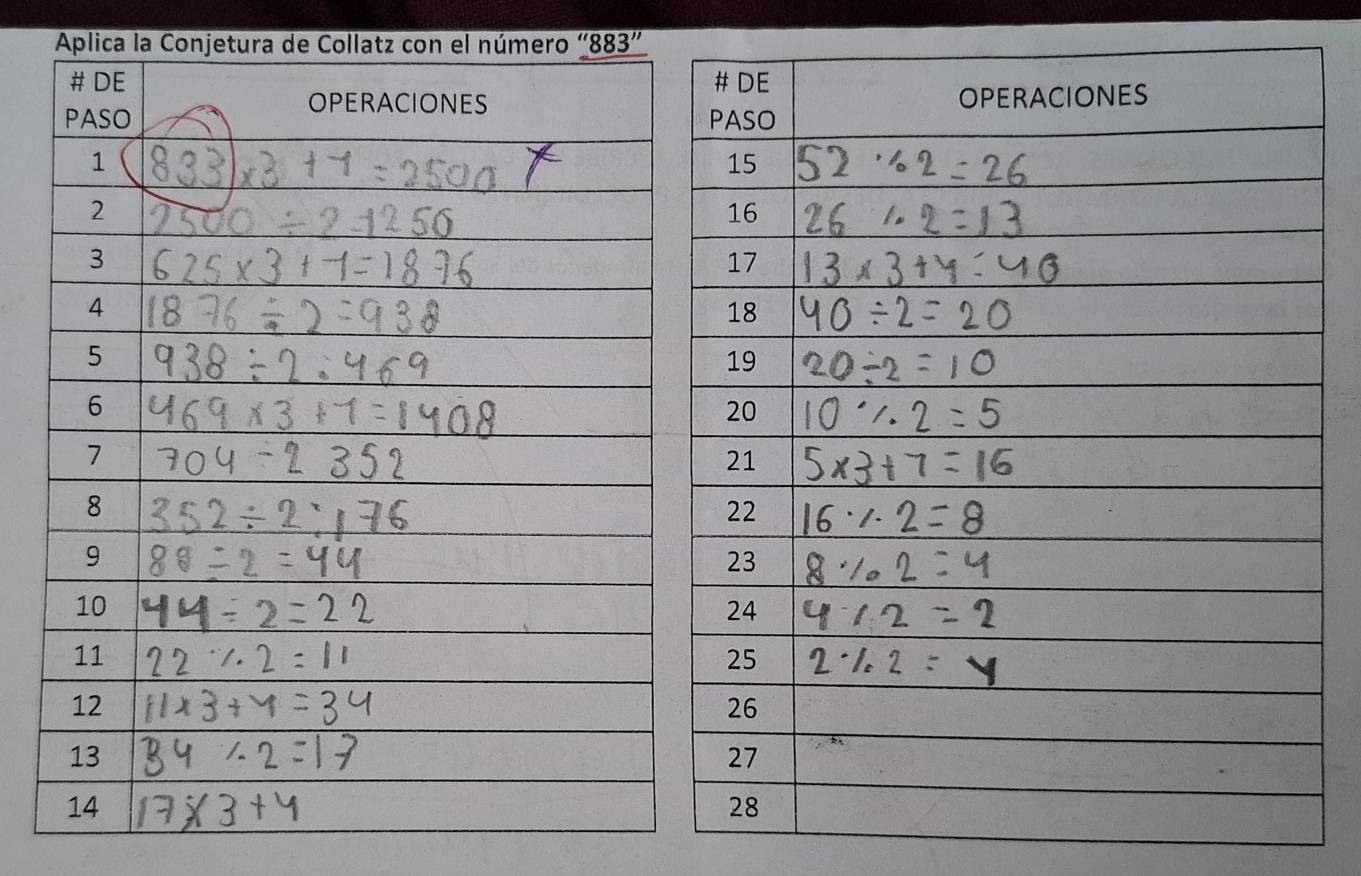 Aplica la Conjetura de Collatz con el número “883”
# DE PASO OPERACIONES
1 833x3+1=2500
2 2500÷2=1250
3 625x3+1=1876
4 1876÷2=938
5 938÷2=469
6 469x3+1=1408
7 704÷2 352
8 352÷2=176
9 88÷2=44
10 44÷2=22
11 22÷2=11
12 11x3+1=34
13 34÷2=17
14 17x3+1
# DE PASO OPERACIONES
15 52÷2=26
16 26÷2=13
17 13x3+1=40
18 40÷2=20
19 20÷2=10
20 10÷2=5
21 5x3+1=16
22 16÷2=8
23 8÷2=4
24 4÷2=2
25 2÷2=1
26
27
28